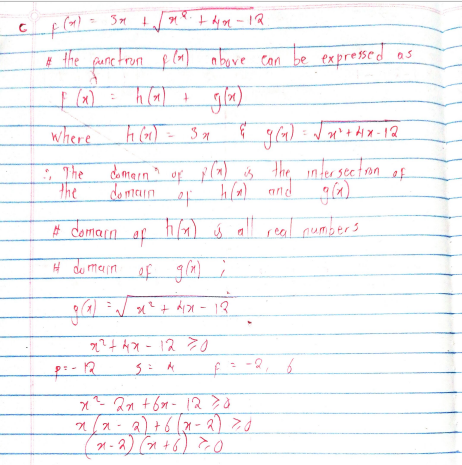 c f(x) = 3x + √x² + 4x - 12
# the function f(x) above can be expressed as
f(x) = h(x) + g(x)
Where h(x) = 3x & g(x) = √x² + 4x - 12
∴ The domain of f(x) is the intersection of
the domain of h(x) and g(x)
# domain of h(x) is all real numbers
# domain of g(x) ;
g(x) = √x² + 4x - 12
x² + 4x - 12 ≥ 0
p = - 12 S = 4 f = -2, 6
x² - 2x + 6x - 12 ≥ 0
x(x - 2) + 6(x - 2) ≥ 0
(x - 2)(x + 6) ≥ 0